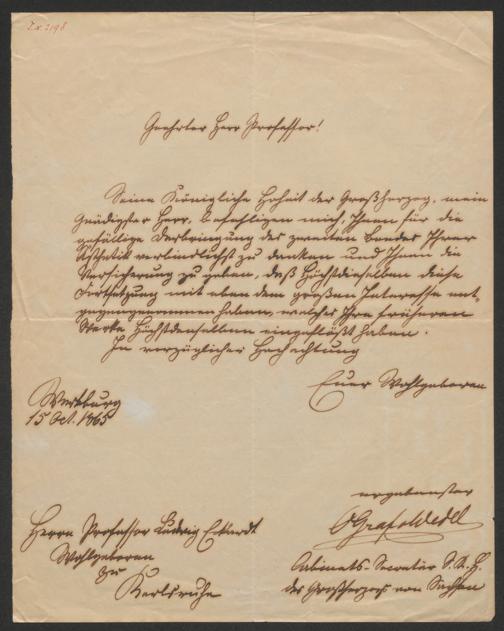 Geehrter Herr Professor!
Seine Königliche Hoheit der Großherzog, mein
Gnädigster Herr, befehligen mich, Ihnen für die
gefällige Darbringung des zweiten Bandes Ihrer
Ästhetik verbindlichst zu danken und Ihnen die
Versicherung zu geben, daß Höchstdieselben diese
Fortsetzung mit eben dem großen Interesse ent-
gegengenommen haben, welches Ihre früheren
Werke Höchstdenselben eingeflößt haben.
In vorzüglicher Hochachtung
Euer Wohlgeboren
Wartburg
15 Oct. 1865
ergebenster
Graf Wedell
Herrn Professor Ludwig Eckardt
Wohlgeboren
zu
Karlsruhe
Cabinets-Secretär S. K. H.
des Großherzogs von Sachsen